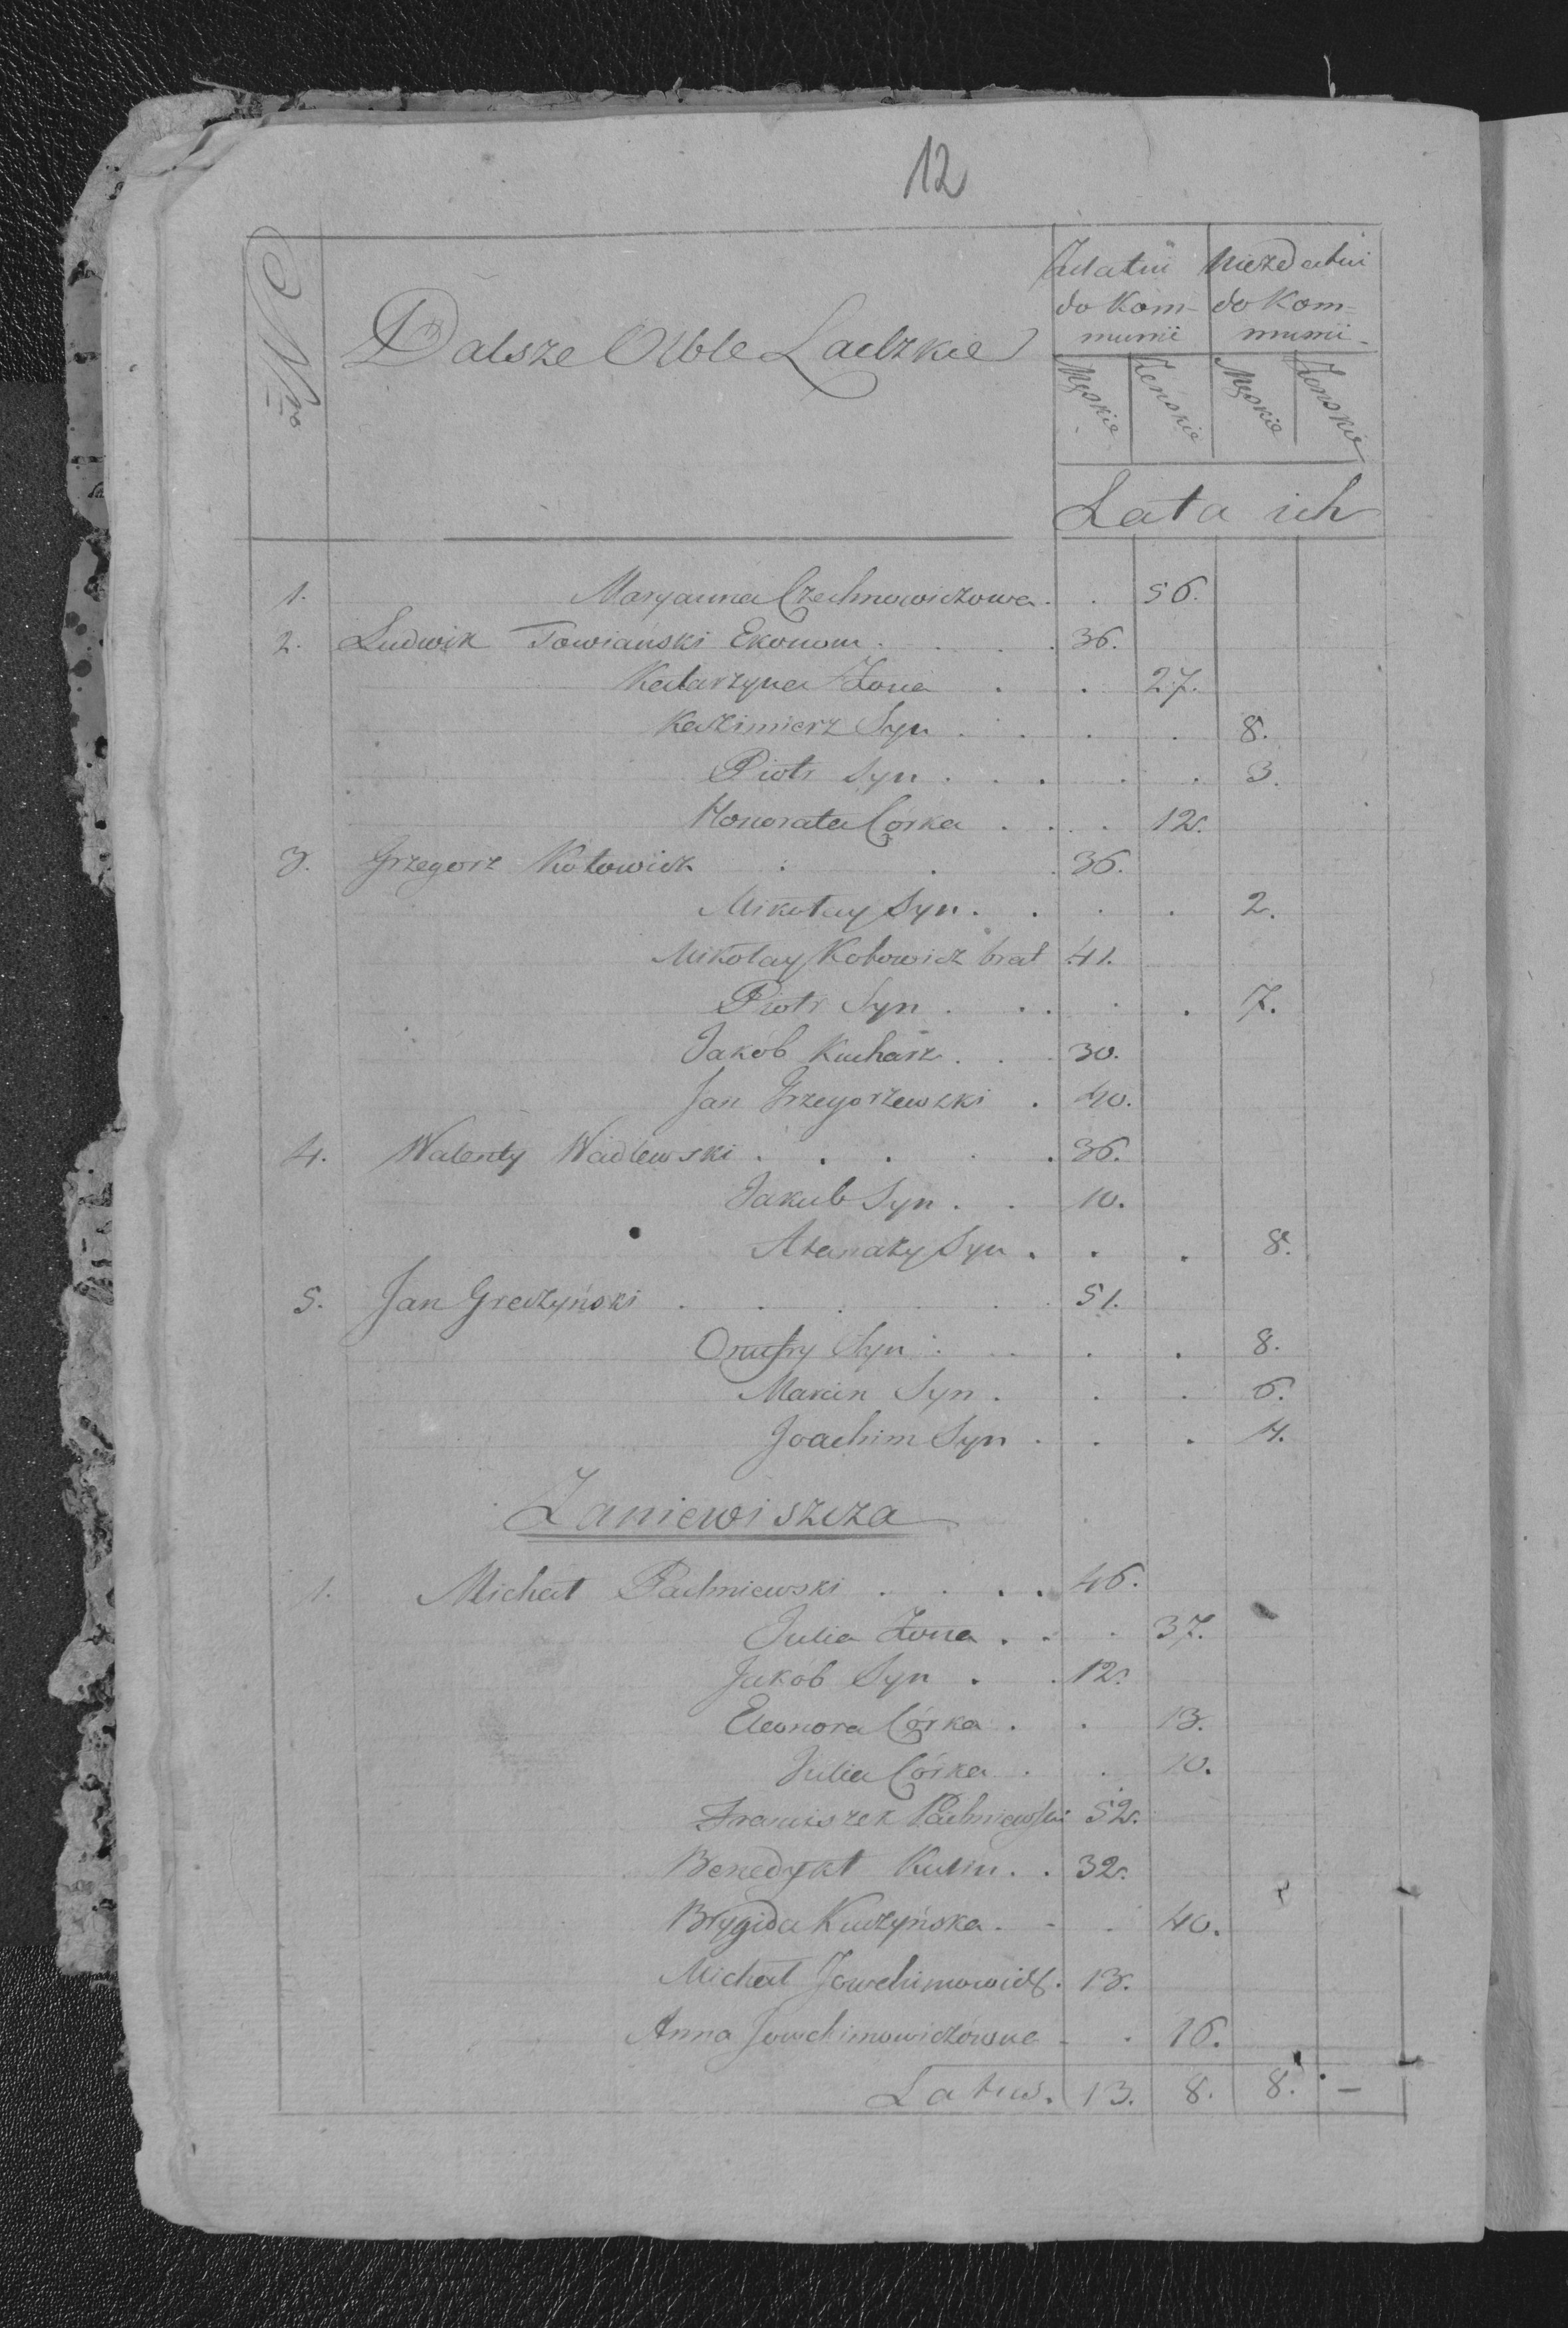 12
Nro
Dalsze Olble Ladzkie
Zdatni do Kom- munii
Niezdatni do Kom- munii
Męskie Żeńskie Męskie Żenskie
Lata ich
1. Maryanna Czechnowiczowa . . 56.
2. Ludwik Towiański Ekonom . . . . 36.
Katarzyna Żona . . 27.
Kazimierz Syn . . . . 8.
Piotr Syn . . . . . 3.
Honorata Córka . . . . 12.
3. Grzegorz Kotowicz . . . 36.
Mikołay Syn . . . . 2.
Mikołay Kotowicz brat 41.
Piotr Syn . . . . . 7.
Jakób Kucharz . . . 30.
Jan Grzegorzewski . 40.
4. Walenty Wadlewski . . . . . 36.
Jakub Syn . . 10.
Atanazy Syn . . . 8.
5. Jan Greczyński . . . . . . 51.
Onufry Syn . . . . 8.
Marcin Syn . . . 6.
Joachim Syn . . . 4.
Zaniewiszcza
1. Michał Pachniewski . . . . 46.
Julia Żona . . . 37.
Jakób Syn . . 12.
Eleonora Córka . . 13.
Julia Córka . . 10.
Franciszek Pachniewski 52.
Benedykt Kulin . . 32.
Brygida Kuczyńska . - . 40.
Michał Jowchimowicz . 13.
Anna Jowchimowiczówna - . 16.
Latus . 13. 8. 8. -